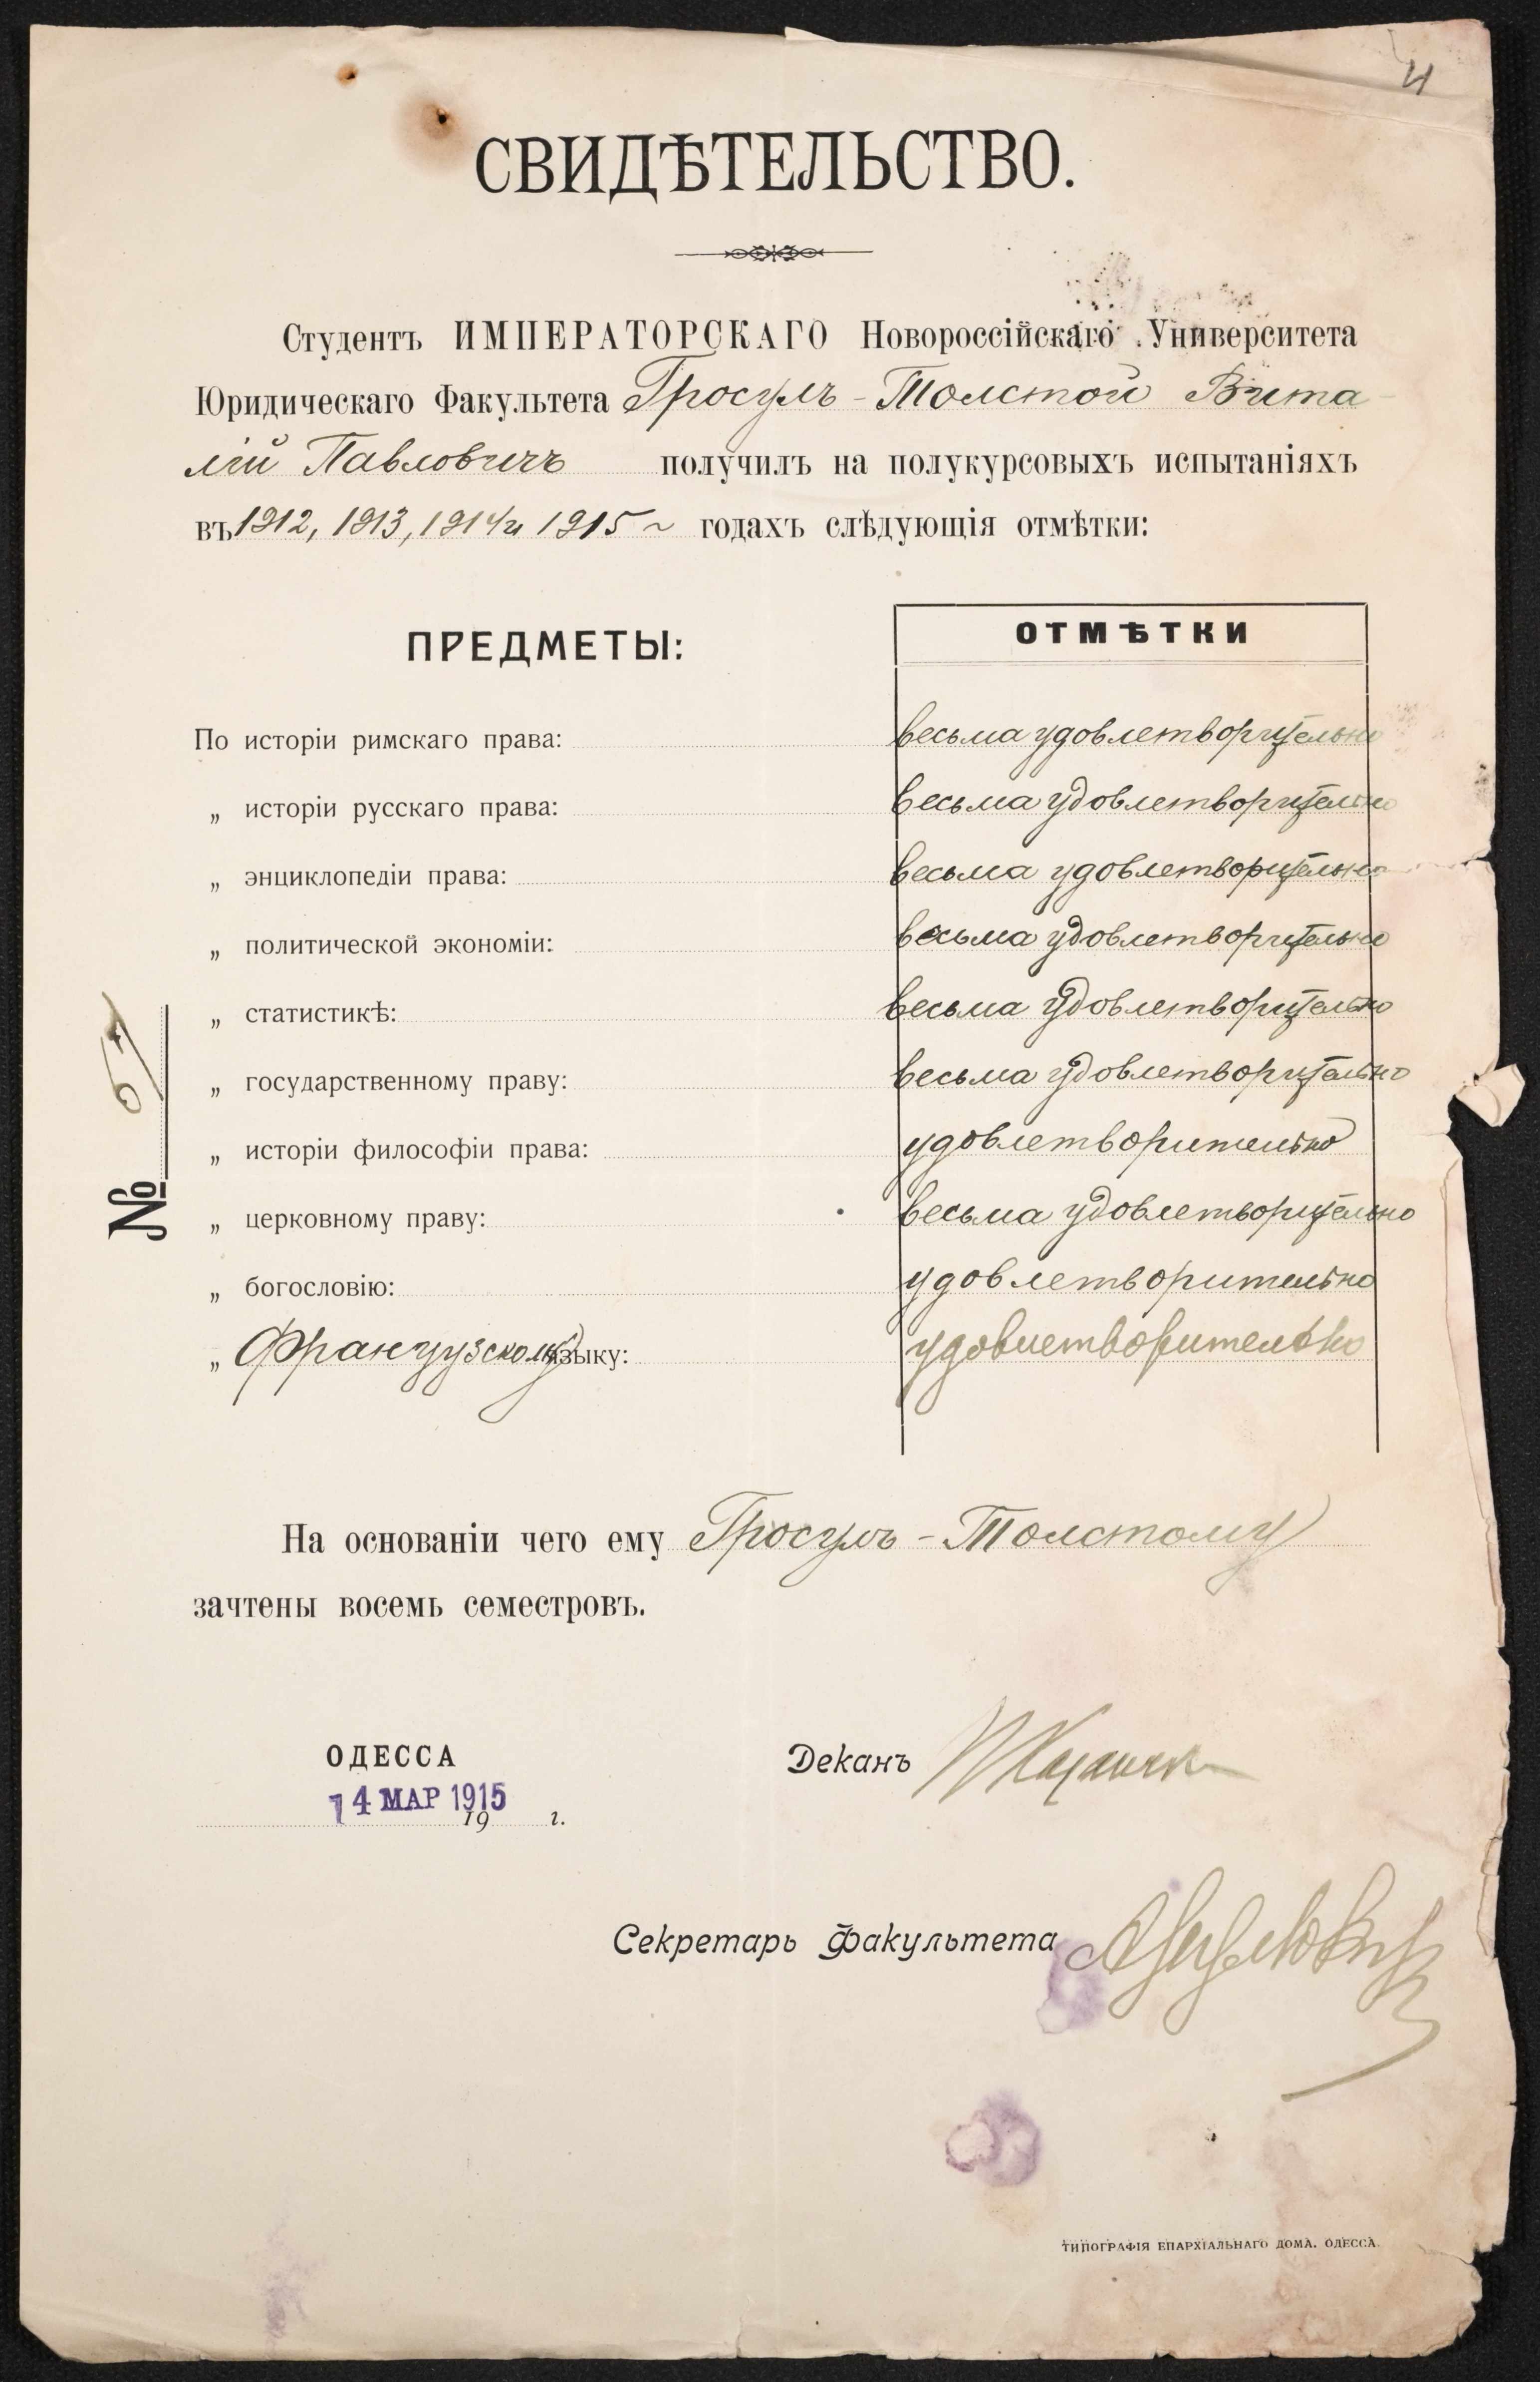 4
СВИДѢТЕЛЬСТВО.
Студентъ ИМПЕРАТОРСКАГО Новороссійскаго Университета
Юридическаго Факультета Гросулъ-Толстой Вита-
лій Павловичъ получилъ на полукурсовыхъ испытаніяхъ
въ 1912, 1913, 1914 и 1915 ~ годахъ слѣдующія отмѣтки:
ПРЕДМЕТЫ: ОТМѢТКИ
По исторіи римскаго права: весьма удовлетворительно
„ исторіи русскаго права: весьма удовлетворительно
„ энциклопедіи права: весьма удовлетворительно
„ политической экономіи: весьма удовлетворительно
„ статистикѣ: весьма удовлетворительно
„ государственному праву: весьма удовлетворительно
„ исторіи философіи права: удовлетворительно
„ церковному праву: весьма удовлетворительно
„ богословію: удовлетворительно
„ Французскому языку: удовлетворительно
№
На основаніи чего ему Гросулъ-Толстому
зачтены восемь семестровъ.
ОДЕССА
14 МАР 1915
19 г.
Деканъ
Секретарь Факультета
ТИПОГРАФІЯ ЕПАРХІАЛЬНАГО ДОМА. ОДЕССА.